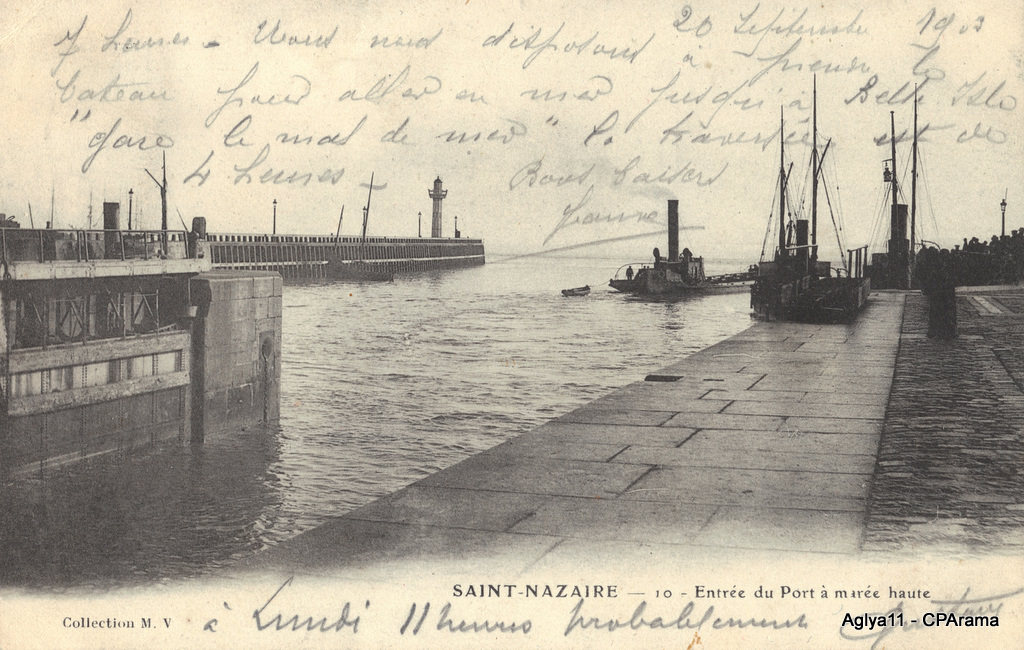 20 Septembre 1903
7 heures - Nous nous disposons à prendre le
bateau pour aller en mer jusqu'à Belle Isle
"gare le mal de mer" la traversée est de
4 heures - Bons baisers
Jeanne
SAINT-NAZAIRE — 10 - Entrée du Port à marée haute
Collection M. V
à Lundi 11 heures probablement
Aglya11 - CPArama